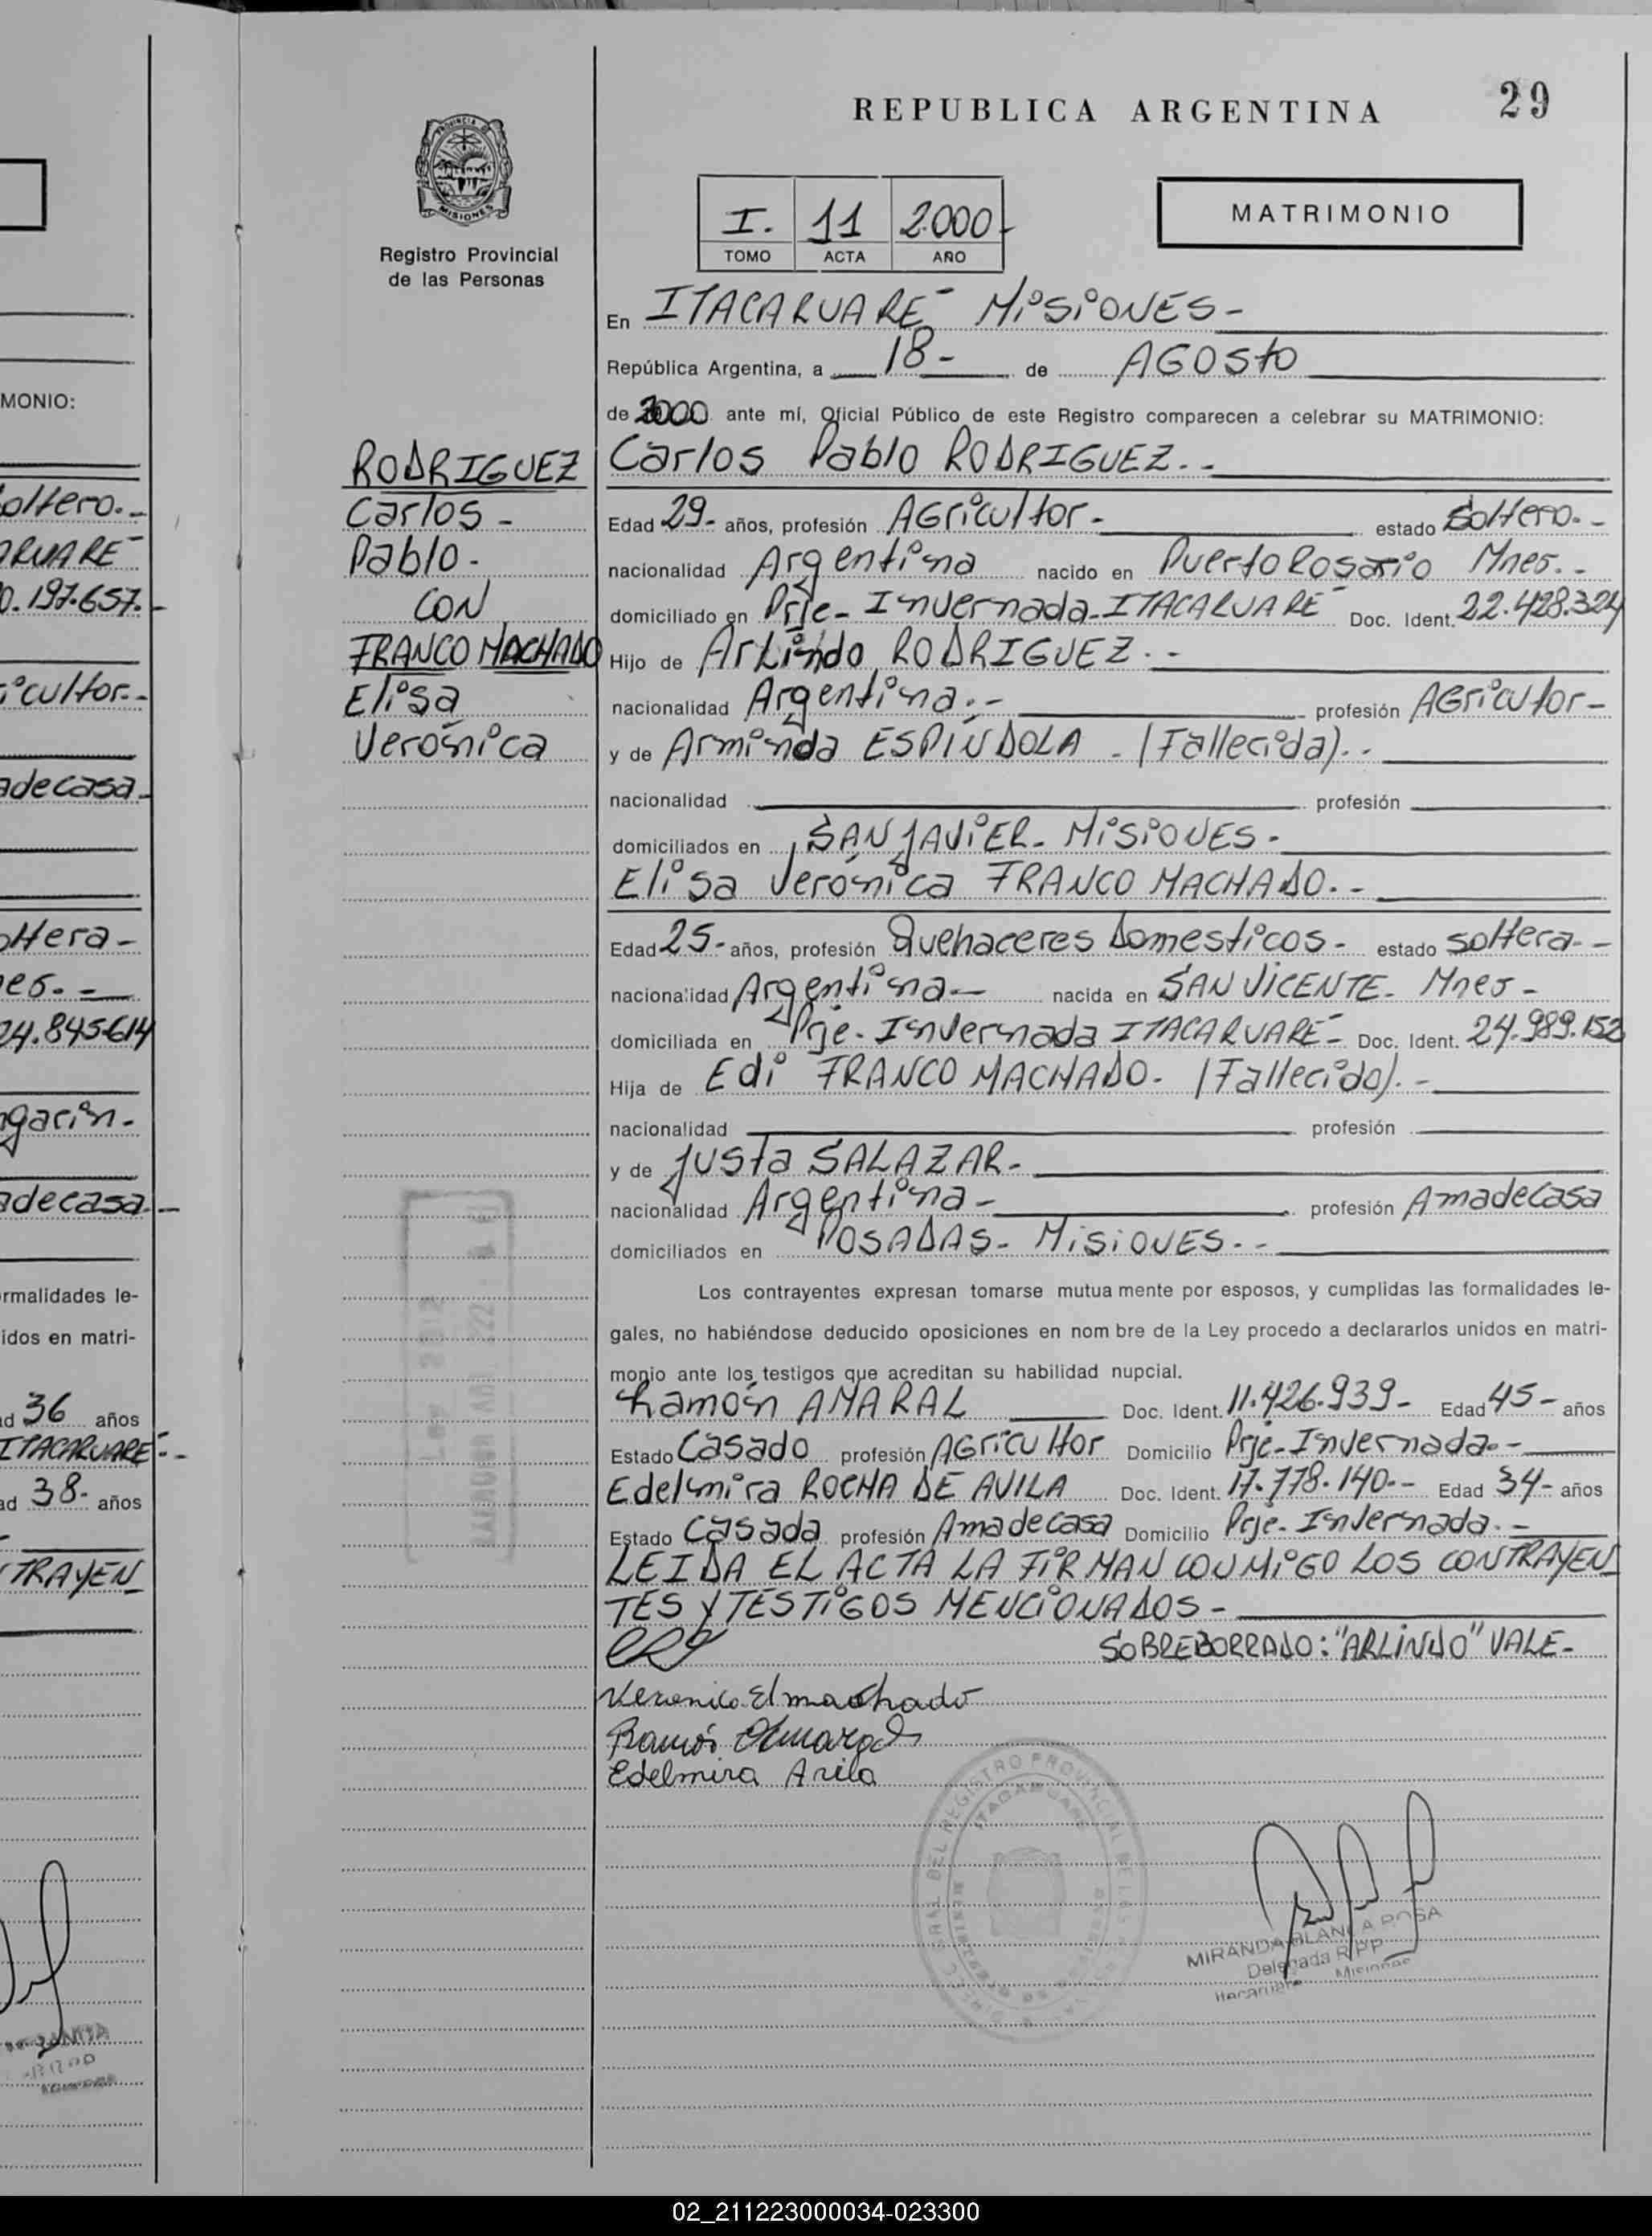 29
REPUBLICA ARGENTINA
PROVINCIA D MISIONES
Registro Provincial
de las Personas
I. 11 2.000-
TOMO ACTA AÑO
MATRIMONIO
En ITACARUARE MISIONES-
República Argentina, a 18- de AGOSTO
de 2000 ante mí, Oficial Público de este Registro comparecen a celebrar su MATRIMONIO:
RODRIGUEZ
Carlos -
Pablo -
CON
FRANCO MACHADO
Elisa
Verónica
Carlos Pablo RODRIGUEZ.-
Edad 29- años, profesión AGricultor- estado Soltero.-
nacionalidad Argentina nacido en Puerto Rosario Mnes.-
domiciliado en Prje- Invernada-ITACARUARE Doc. Ident. 22.428.324
Hijo de Arlindo RODRIGUEZ.-
nacionalidad Argentina.- profesión AGricultor-
y de Arminda ESPINDOLA - (Fallecida).-
nacionalidad profesión
domiciliados en SAN JAVIER- MISIONES-
Elisa Verónica FRANCO MACHADO.-
Edad 25- años, profesión Quehaceres Domesticos- estado soltera-
nacionalidad Argentina- nacida en SAN VICENTE- Mnes-
domiciliada en Prje- Invernada ITACARUARE- Doc. Ident. 24.989.152
Hija de Edi FRANCO MACHADO- (Fallecido).-
nacionalidad profesión
y de Justa SALAZAR-
nacionalidad Argentina- profesión Amadecasa
domiciliados en POSADAS- MISIONES.-
Los contrayentes expresan tomarse mutua mente por esposos, y cumplidas las formalidades le-
gales, no habiéndose deducido oposiciones en nom bre de la Ley procedo a declararlos unidos en matri-
monio ante los testigos que acreditan su habilidad nupcial.
Ramón AMARAL Doc. Ident. 11.426.939- Edad 45- años
Estado Casado profesión AGricultor Domicilio Prje- Invernada.-
Edelmira ROCHA DE AVILA Doc. Ident. 17.778.140.- Edad 34- años
Estado Casada profesión Amadecasa Domicilio Prje- Invernada.-
LEIDA EL ACTA LA FIRMAN CONMIGO LOS CONTRAYEN
TES Y TESTIGOS MENCIONADOS-
SOBREBORRADO: "ARLINDO" VALE-
Veronica El machado
Ramón Amaral
Edelmira Avila
MIRANDA BLANCA ROSA
Delegada R.P.P.
Itacaruaré Misiones
MONIO:
oltero.-
ARUARE
0.197.657.-
icultor.-
adecasa-
oltera-
es.-
24.845614
adecasa.-
rmalidades le-
idos en matri-
ad 36 años
ITACARUARE-
ad 38- años
TRAYEN
02_211223000034-023300